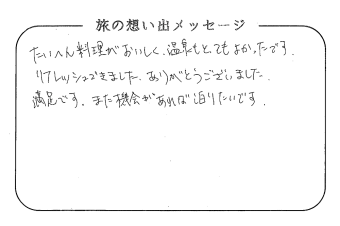 旅の想い出メッセージ
たいへん料理がおいしく、温泉もとてもよかったです.
リフレッシュできました. ありがとうございました.
満足です. また機会があれば泊りたいです.